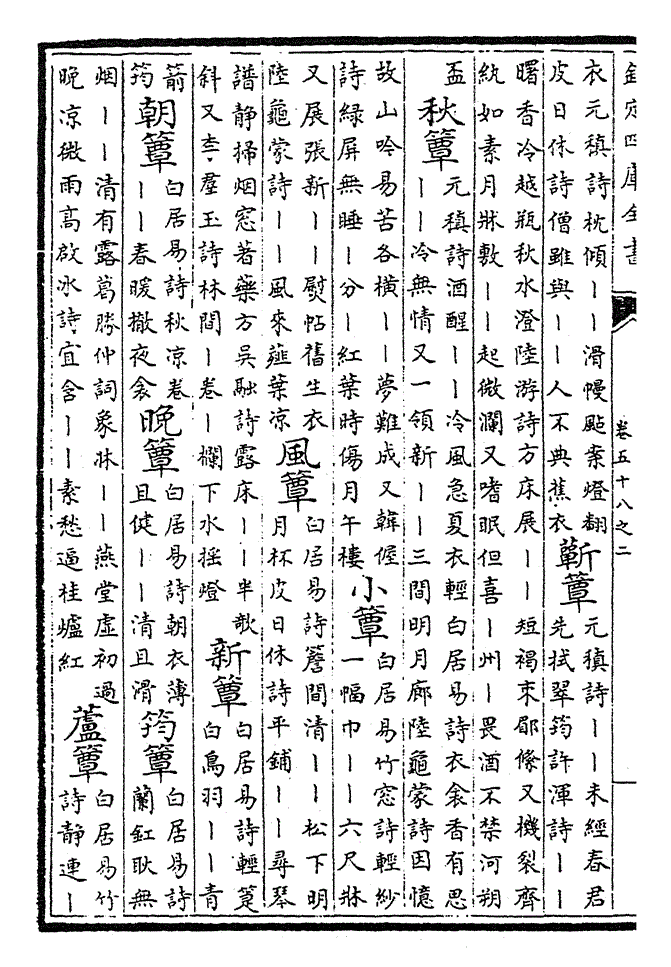 欽定四庫全書
卷五十八之二
衣元稹詩枕傾丨丨滑幔㸃案燈翻
皮日休詩僧雖與丨丨人不典蕉衣
蘄簟
元稹詩丨丨未經春君
先拭翠筠許渾詩丨丨
曙香冷越瓶秋水澄陸游詩方床展丨丨短褐束郿絛又機裂齊
紈如素月牀敷丨丨起微瀾又嗜眠但喜丨州丨畏酒不禁河朔
盃
秋簟
元稹詩酒醒丨丨冷風急夏衣輕白居易詩衣衾香有思
丨丨冷無情又一領新丨丨三間明月廊陸龜蒙詩因憶
故山吟易苦各橫丨丨夢難成又韓偓
詩綠屏無睡丨分丨紅葉時傷月午樓
小簟
白居易竹窓詩輕紗
一幅巾丨丨六尺牀
又展張新丨丨熨帖舊生衣
陸龜蒙詩丨丨風來薤葉凉
風簟
白居易詩簷間清丨丨松下明
月杯皮日休詩平鋪丨丨尋琴
譜静掃烟窓著藥方吳融詩露床丨丨半欹
斜又李羣玉詩林間丨卷丨欄下水摇燈
新簟
白居易詩輕筵
白鳥羽丨丨青
箭
筠
朝簟
白居易詩秋凉卷
丨丨春暖撤夜衾
晚簟
白居易詩朝衣薄
且健丨丨清且滑
筠簟
白居易詩
蘭釭耿無
烟丨丨清有露葛勝仲詞象牀丨丨燕堂虚初過
晚凉微雨高啟冰詩宜含丨丨丨素愁逼桂爐紅
蘆簟
白居易竹
詩静連丨